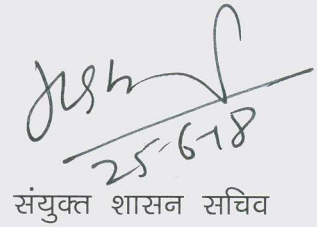 25-6-18
संयुक्त शासन सचिव